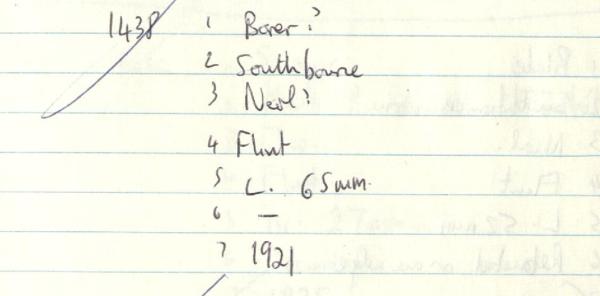 1438 1 Borer?
2 Southbourne
3 Neol?
4 Flint
5 L. 65mm.
6 —
7 1921